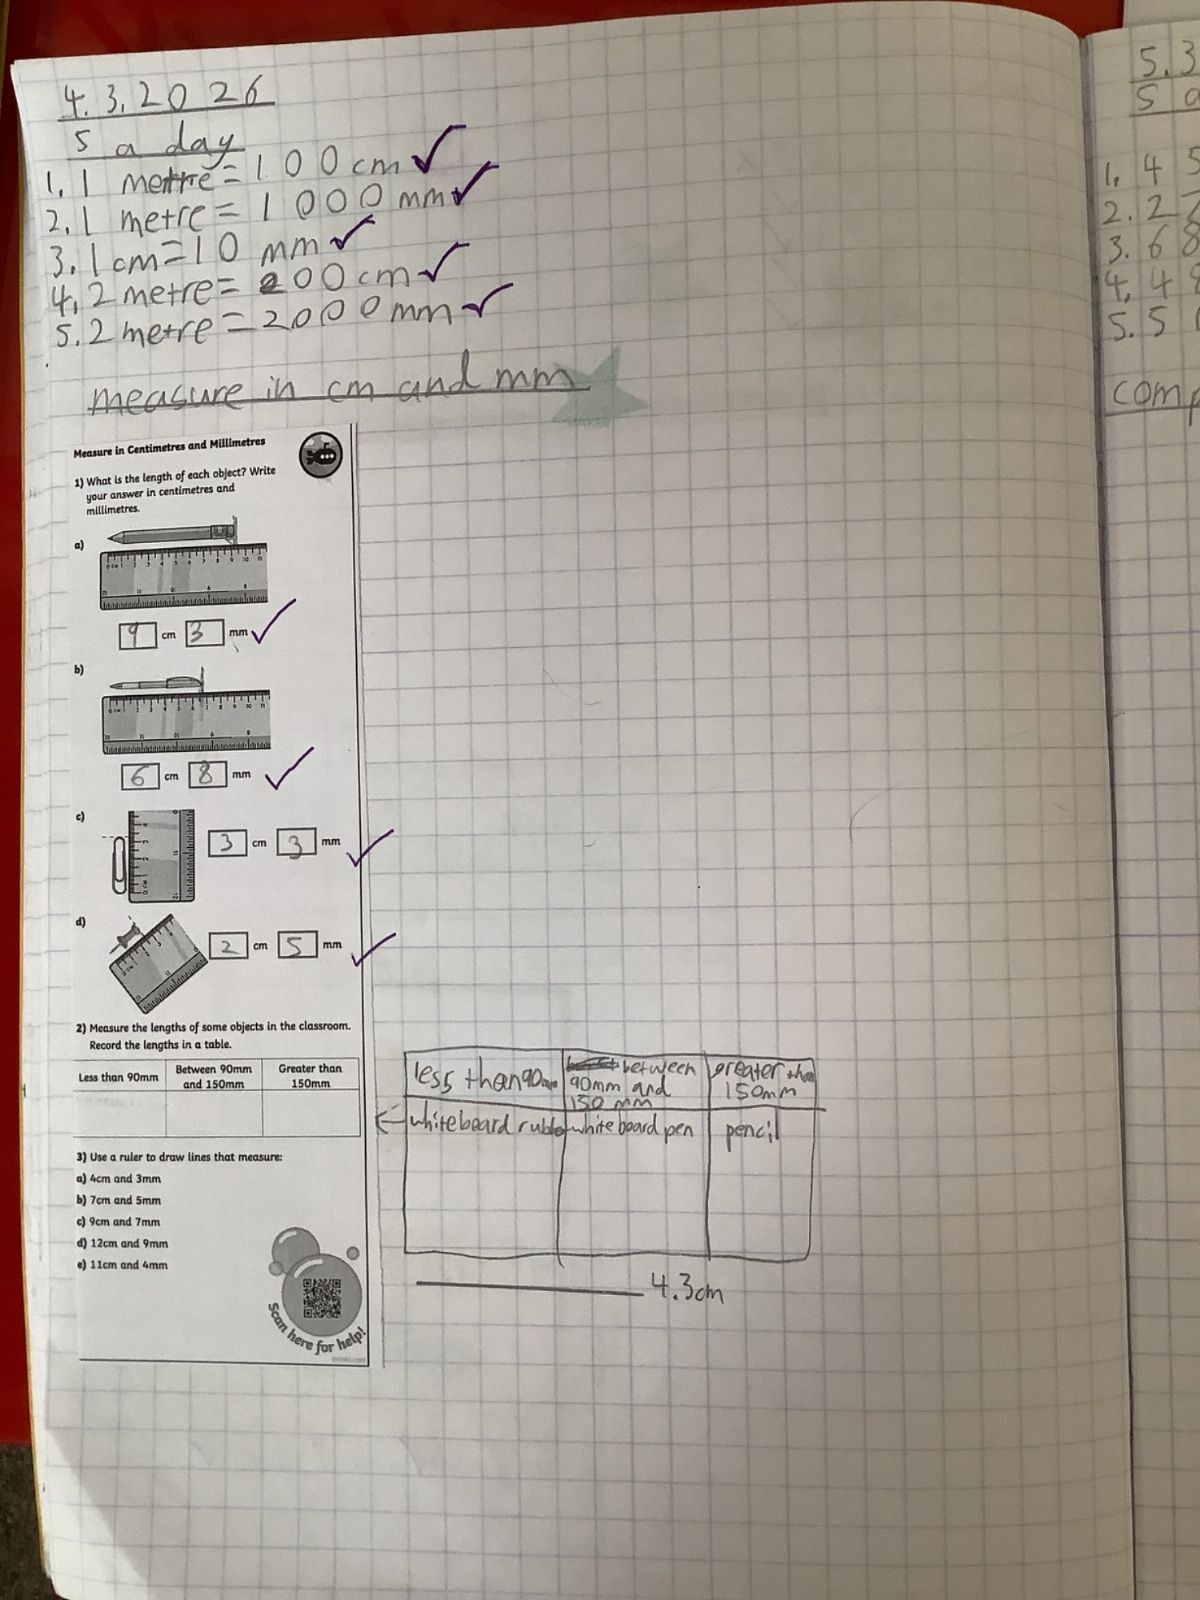 4.3.2026
5 a day
1. 1 metre = 100 cm
2. 1 metre = 1000 mm
3. 1 cm = 10 mm
4. 2 metre = 200 cm
5. 2 metre = 2000 mm
measure in cm and mm
Measure in Centimetres and Millimetres
1) What is the length of each object? Write
your answer in centimetres and
millimetres.
a)
9 cm 3 mm
b)
6 cm 8 mm
c)
3 cm 3 mm
d)
2 cm 5 mm
2) Measure the lengths of some objects in the classroom.
Record the lengths in a table.
Less than 90mm
Between 90mm
and 150mm
Greater than
150mm
3) Use a ruler to draw lines that measure:
a) 4cm and 3mm
b) 7cm and 5mm
c) 9cm and 7mm
d) 12cm and 9mm
e) 11cm and 4mm
Scan here for help!
less than 90mm
between
90mm and
150 mm
greater than
150mm
whiteboard rubber
whiteboard pen
pencil
4.3cm
5.3
5 a
1. 4 5
2. 2
3. 6 8
4. 4
5. 5
comp